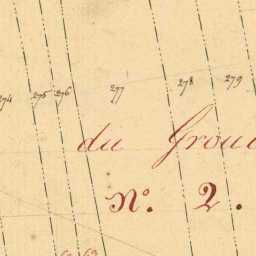 274 275 276 277 278 279
du
No. 2.